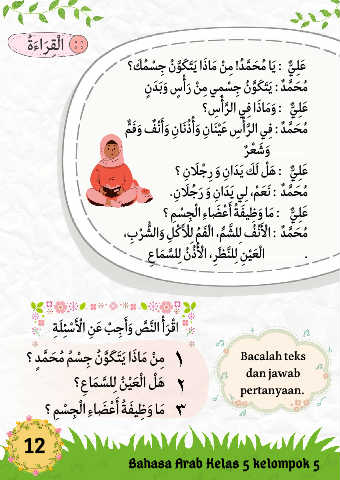 اَلْقِرَاءَةُ
عَلِيٌّ : يَا مُحَمَّدُ! مِنْ مَاذَا يَتَكَوَّنُ جِسْمُكَ؟
مُحَمَّدٌ : يَتَكَوَّنُ جِسْمِي مِنْ رَأْسٍ وَبَدَنٍ
عَلِيٌّ : وَمَاذَا فِي الرَّأْسِ؟
مُحَمَّدٌ : فِي الرَّأْسِ عَيْنَانِ وَأُذُنَانِ وَأَنْفٌ وَفَمٌّ
وَشَعْرٌ
عَلِيٌّ : هَلْ لَكَ يَدَانِ وَ رِجْلَانِ ؟
مُحَمَّدٌ : نَعَمْ، لِي يَدَانِ وَ رَجُلَانِ.
عَلِيٌّ : مَا وَظِيفَةُ أَعْضَاءِ الْجِسْمِ ؟
مُحَمَّدٌ : اَلْأَنْفُ لِلشَّمِّ، الْفَمُ لِلْأَكْلِ وَالشُّرْبِ،
الْعَيْنُ لِلنَّظَرِ، الْأُذُنُ لِلسَّمَاعِ .
اقْرَأْ النَّصَّ وَأَجِبْ عَنِ الْأَسْئِلَةِ
١ مِنْ مَاذَا يَتَكَوَّنُ جِسْمُ مُحَمَّدٍ ؟
٢ هَلْ الْعَيْنُ لِلسَّمَاعِ؟
٣ مَا وَظِيفَةُ أَعْضَاءِ الْجِسْمِ ؟
Bacalah teks
dan jawab
pertanyaan.
12
Bahasa Arab Kelas 5 kelompok 5